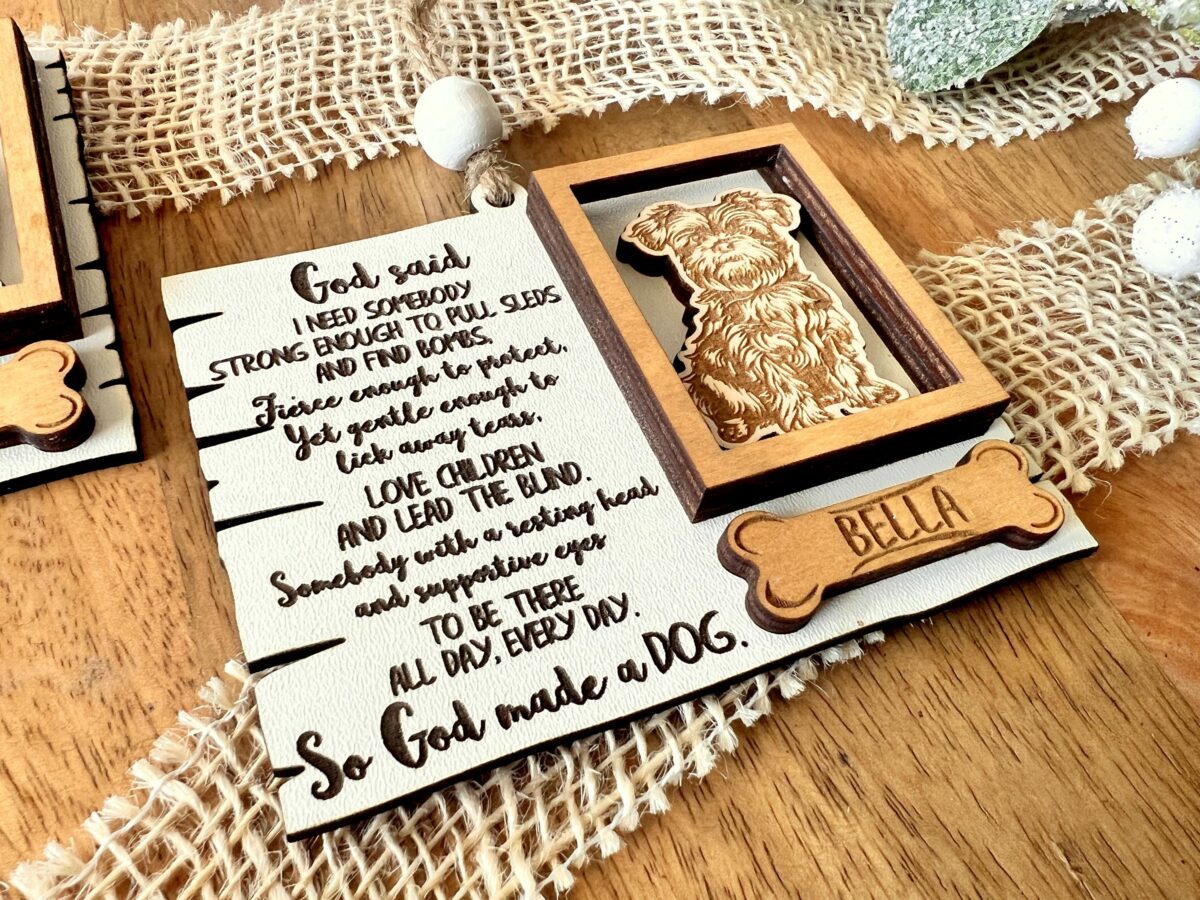 God said
I NEED SOMEBODY
STRONG ENOUGH TO PULL SLEDS
AND FIND BOMBS.
Fierce enough to protect,
Yet gentle enough to
lick away tears,
LOVE CHILDREN
AND LEAD THE BLIND.
Somebody with a resting head
and supportive eyes
TO BE THERE
ALL DAY, EVERY DAY.
So God made a DOG.
BELLA